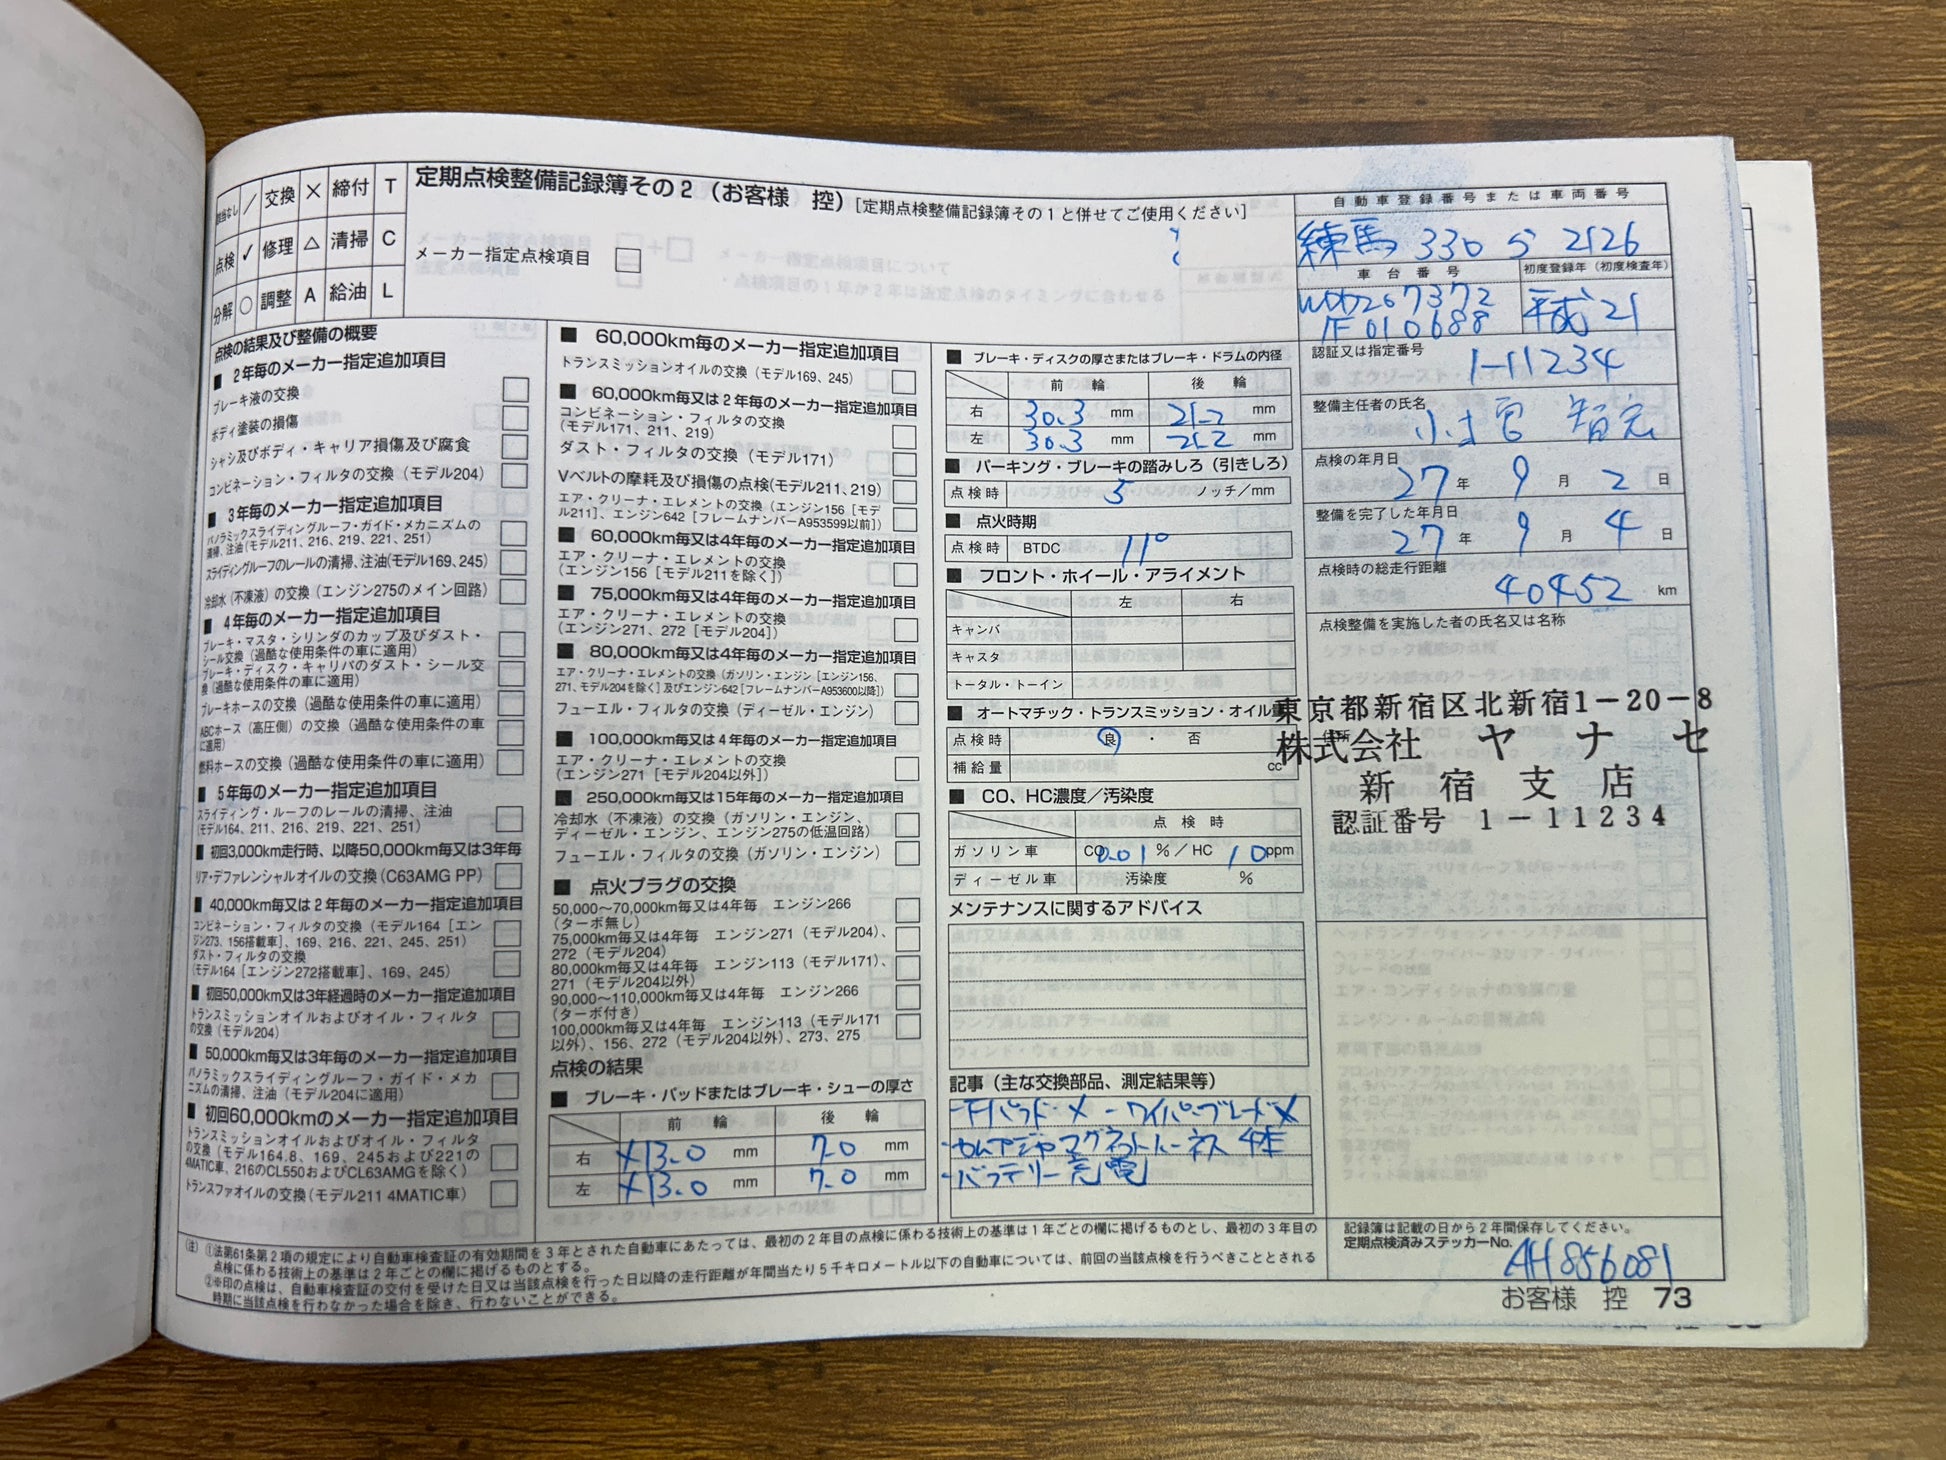 該当なし / 交換 × 締付 T
点検 ✓ 修理 △ 清掃 C
分解 ○ 調整 A 給油 L
定期点検整備記録簿その2(お客様 控)[定期点検整備記録簿その1と併せてご使用ください]
メーカー指定点検項目
点検の結果及び整備の概要
■ 2年毎のメーカー指定追加項目
ブレーキ液の交換
ボディ塗装の損傷
シャシ及びボディ・キャリア損傷及び腐食
コンビネーション・フィルタの交換(モデル204)
■ 3年毎のメーカー指定追加項目
パノラミックスライディングルーフ・ガイド・メカニズムの
清掃、注油(モデル211、216、219、221、251)
スライディングルーフのレールの清掃、注油(モデル169、245)
冷却水(不凍液)の交換(エンジン275のメイン回路)
■ 4年毎のメーカー指定追加項目
ブレーキ・マスタ・シリンダのカップ及びダスト・
シール交換(過酷な使用条件の車に適用)
ブレーキ・ディスク・キャリパのダスト・シール交
換(過酷な使用条件の車に適用)
ブレーキホースの交換(過酷な使用条件の車に適用)
ABCホース(高圧側)の交換(過酷な使用条件の車
に適用)
燃料ホースの交換(過酷な使用条件の車に適用)
■ 5年毎のメーカー指定追加項目
スライディング・ルーフのレールの清掃、注油
(モデル164、211、216、219、221、251)
■ 初回3,000km走行時、以降50,000km毎又は3年毎
リア・デファレンシャルオイルの交換(C63AMG PP)
■ 40,000km毎又は2年毎のメーカー指定追加項目
コンビネーション・フィルタの交換(モデル164[エン
ジン273、156搭載車]、169、216、221、245、251)
ダスト・フィルタの交換
(モデル164[エンジン272搭載車]、169、245)
■ 初回50,000km又は3年経過時のメーカー指定追加項目
トランスミッションオイルおよびオイル・フィルタ
の交換(モデル204)
■ 50,000km毎又は3年毎のメーカー指定追加項目
パノラミックスライディングルーフ・ガイド・メカ
ニズムの清掃、注油(モデル204に適用)
■ 初回60,000kmのメーカー指定追加項目
トランスミッションオイルおよびオイル・フィルタ
の交換(モデル164.8、169、245および221の
4MATIC車、216のCL550およびCL63AMGを除く)
トランスファオイルの交換(モデル211 4MATIC車)
■ 60,000km毎のメーカー指定追加項目
トランスミッションオイルの交換(モデル169、245)
■ 60,000km毎又は2年毎のメーカー指定追加項目
コンビネーション・フィルタの交換
(モデル171、211、219)
ダスト・フィルタの交換(モデル171)
Vベルトの摩耗及び損傷の点検(モデル211、219)
エア・クリーナ・エレメントの交換(エンジン156[モデ
ル211]、エンジン642[フレームナンバーA953599以前])
■ 60,000km毎又は4年毎のメーカー指定追加項目
エア・クリーナ・エレメントの交換
(エンジン156[モデル211を除く])
■ 75,000km毎又は4年毎のメーカー指定追加項目
エア・クリーナ・エレメントの交換
(エンジン271、272[モデル204])
■ 80,000km毎又は4年毎のメーカー指定追加項目
エア・クリーナ・エレメントの交換(ガソリン・エンジン[エンジン156、
271、モデル204を除く]及びエンジン642[フレームナンバーA953600以降])
フューエル・フィルタの交換(ディーゼル・エンジン)
■ 100,000km毎又は4年毎のメーカー指定追加項目
エア・クリーナ・エレメントの交換
(エンジン271[モデル204以外])
■ 250,000km毎又は15年毎のメーカー指定追加項目
冷却水(不凍液)の交換(ガソリン・エンジン、
ディーゼル・エンジン、エンジン275の低温回路)
フューエル・フィルタの交換(ガソリン・エンジン)
■ 点火プラグの交換
50,000〜70,000km毎又は4年毎 エンジン266
(ターボ無し)
75,000km毎又は4年毎 エンジン271(モデル204)、
272(モデル204)
80,000km毎又は4年毎 エンジン113(モデル171)、
271(モデル204以外)
90,000〜110,000km毎又は4年毎 エンジン266
(ターボ付き)
100,000km毎又は4年毎 エンジン113(モデル171
以外)、156、272(モデル204以外)、273、275
点検の結果
■ ブレーキ・パッドまたはブレーキ・シューの厚さ
前 輪 後 輪
右 ×13.0 mm 7.0 mm
左 ×13.0 mm 7.0 mm
■ ブレーキ・ディスクの厚さまたはブレーキ・ドラムの内径
前 輪 後 輪
右 30.3 mm 21.2 mm
左 30.3 mm 21.2 mm
■ パーキング・ブレーキの踏みしろ(引きしろ)
点検時 5 ノッチ/mm
■ 点火時期
点検時 BTDC 11°
■ フロント・ホイール・アライメント
左 右
キャンバ
キャスタ
トータル・トーイン
■ オートマチック・トランスミッション・オイル量
点検時 良 ・ 否
補給量 cc
■ CO、HC濃度/汚染度
点検時
ガソリン車 CO 0.01 %/HC 10 ppm
ディーゼル車 汚染度 %
メンテナンスに関するアドバイス
記事(主な交換部品、測定結果等)
-Fパッド × -ワイパーブレード×
・マグネットハーネス
・バッテリー充電
自動車登録番号または車両番号
練馬 330 ら 2126
車台番号 初度登録年(初度検査年)
WDD267372
1F010688 平成21
認証又は指定番号
1-11234
整備主任者の氏名
点検の年月日
27 年 9 月 2 日
整備を完了した年月日
27 年 9 月 4 日
点検時の総走行距離
40452 km
点検整備を実施した者の氏名又は名称
東京都新宿区北新宿1-20-8
住所
株式会社 ヤナセ
新宿支店
認証番号 1-11234
記録簿は記載の日から2年間保存してください。
定期点検済みステッカーNo.
AH856081
(注) ①法第61条第2項の規定により自動車検査証の有効期間を3年とされた自動車にあたっては、最初の2年目の点検に係わる技術上の基準は1年ごとの欄に掲げるものとし、最初の3年目の
点検に係わる技術上の基準は2年ごとの欄に掲げるものとする。
②※印の点検は、自動車検査証の交付を受けた日又は当該点検を行った日以降の走行距離が年間当たり5千キロメートル以下の自動車については、前回の当該点検を行うべきこととされる
時期に当該点検を行わなかった場合を除き、行わないことができる。
お客様 控 73